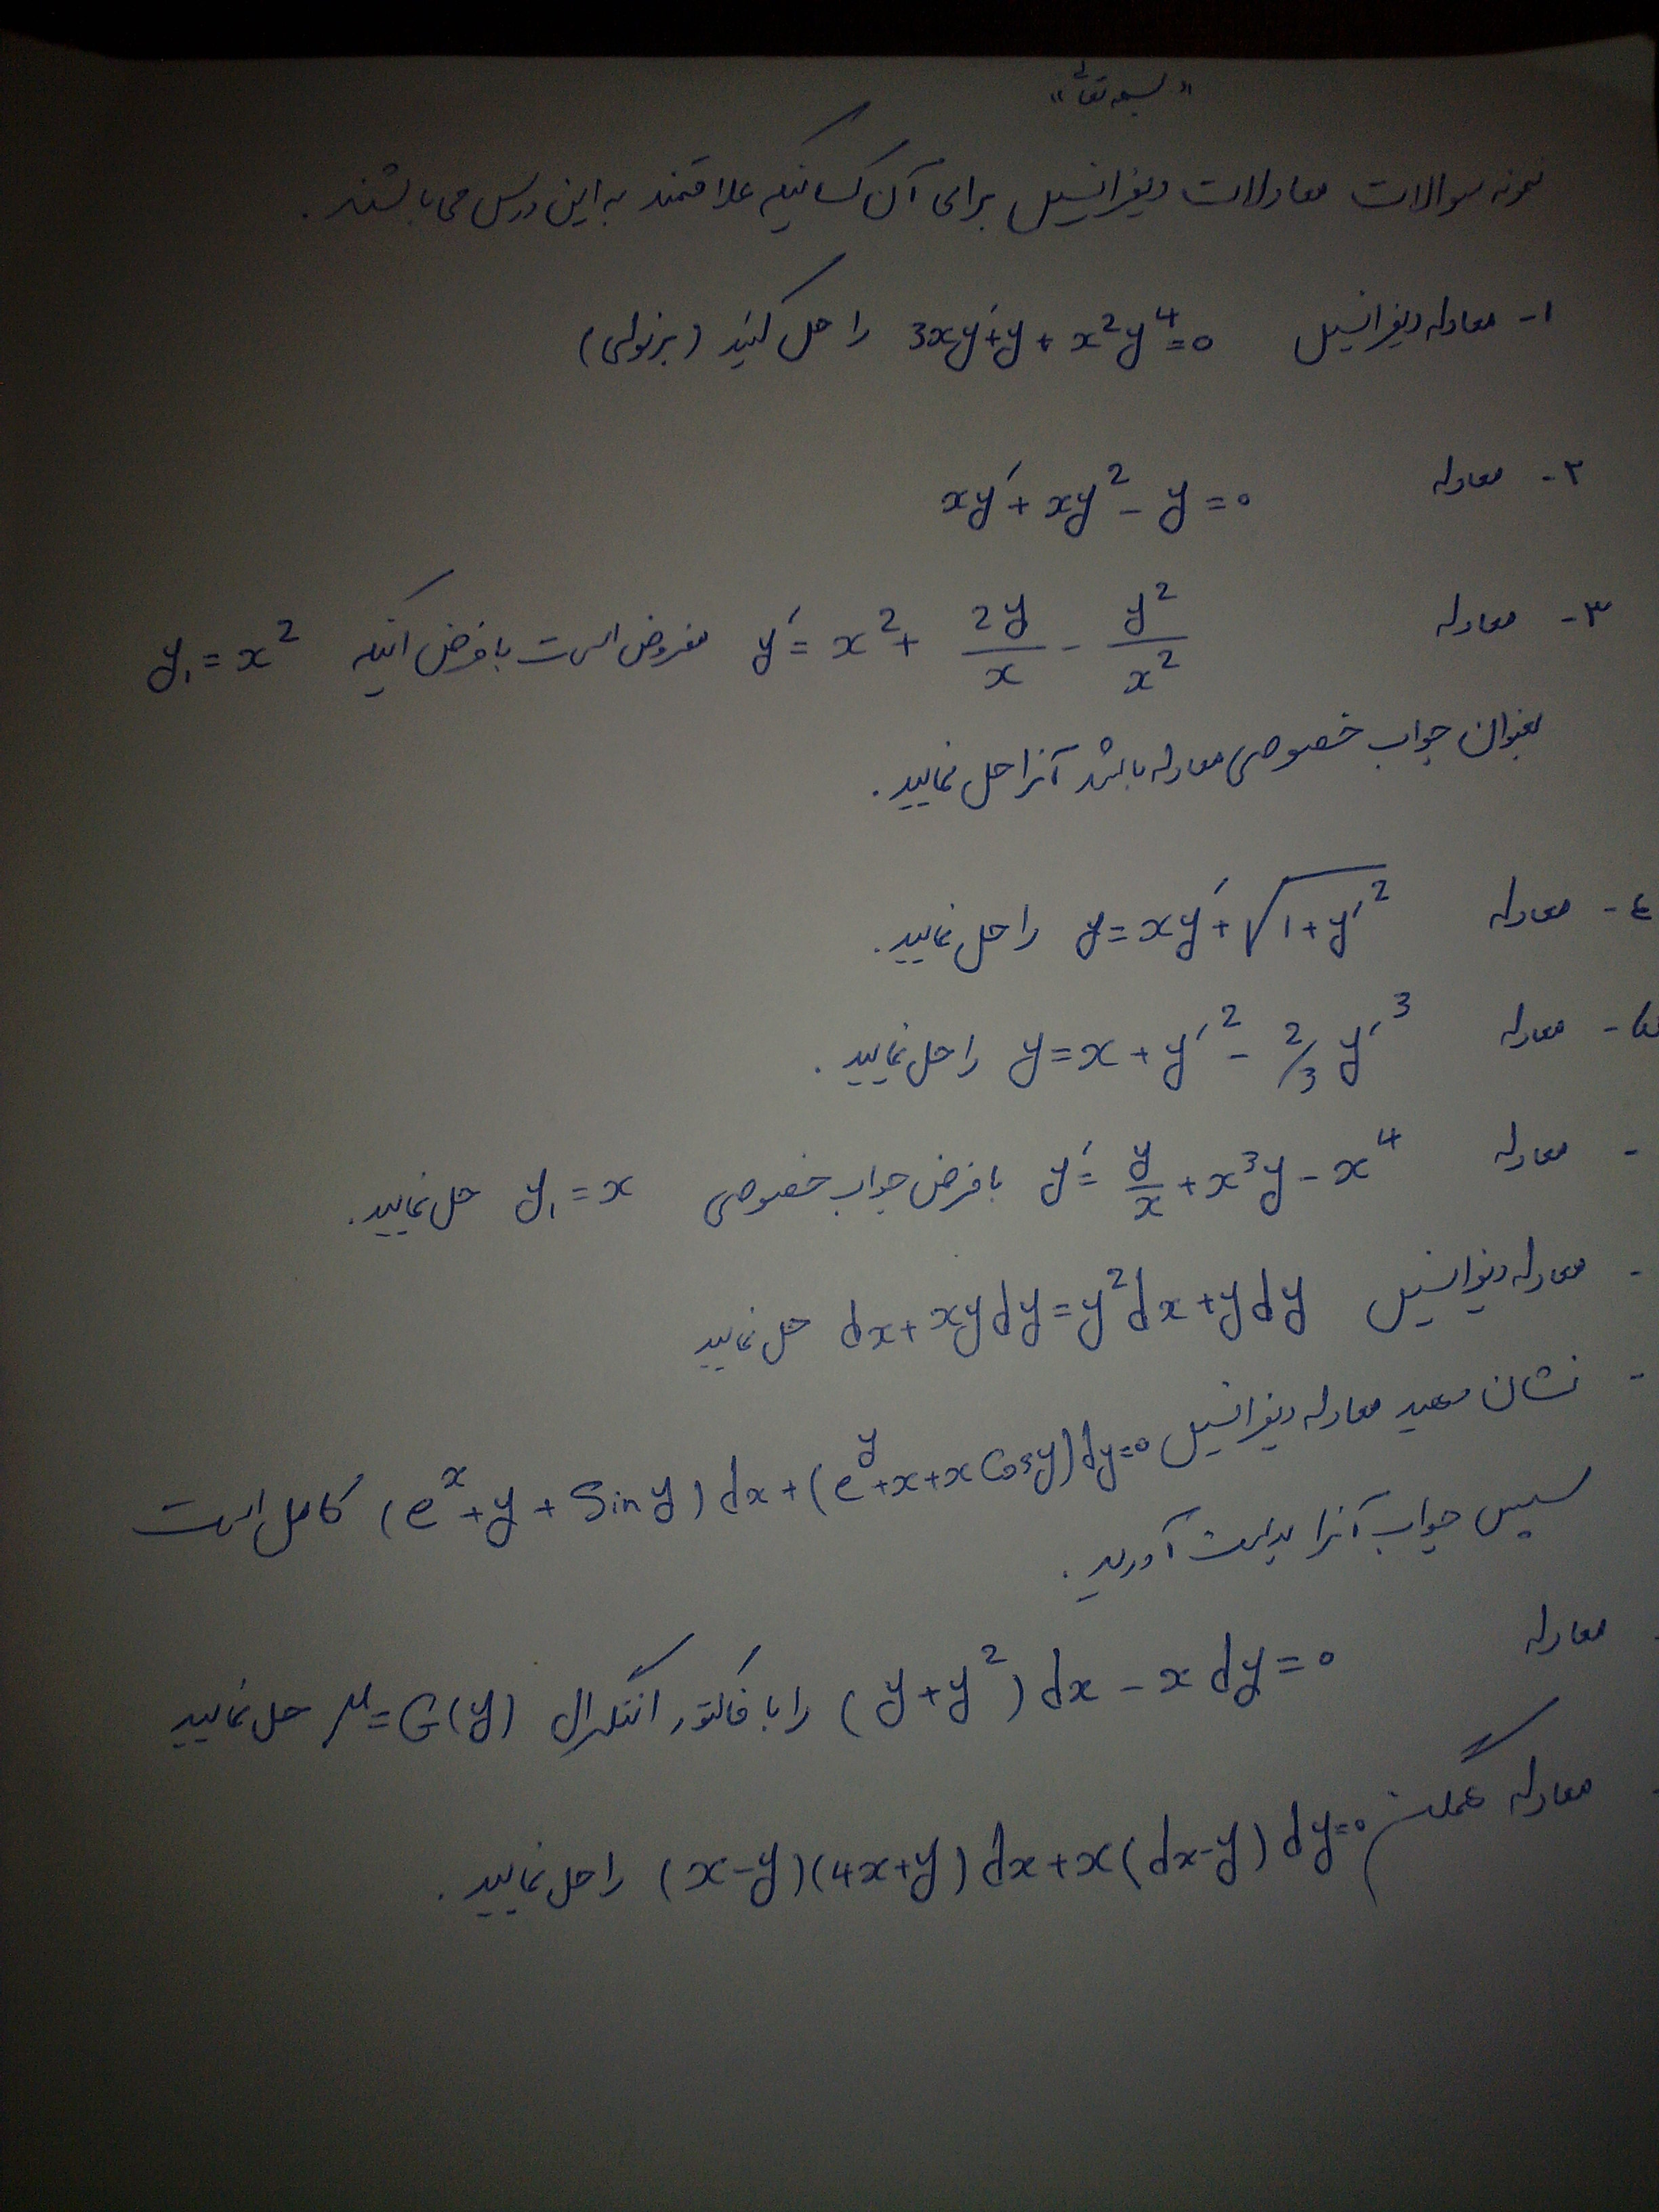 «بسمه تعالی»
نمونه سوالات معادلات دیفرانسیل برای آن کسانیکه علاقمند به این درس می باشند.
۱- معادله دیفرانسیل 3xy′+y+x²y⁴=0 را حل کنید (برنولی)
۲- معادله xy′+xy²-y=0
۳- معادله y′=x²+2y/x-y²/x² مفروض است با فرض آنکه y₁=x²
بعنوان جواب خصوصی معادله باشد آنرا حل نمایید.
٤- معادله y=xy′+√1+y′² را حل نمایید.
۵- معادله y=x+y′²-2/3y′³ را حل نمایید.
- معادله y′=y/x+x³y-x⁴ با فرض جواب خصوصی y₁=x حل نمایید.
- معادله دیفرانسیل dx+xydy=y²dx+ydy حل نمایید
- نشان دهید معادله دیفرانسیل (eˣ+y+Siny)dx+(eʸ+x+xCosy)dy=0 کامل است
سپس جواب آنرا بدست آورید.
معادله (y+y²)dx-xdy=0 را با فاکتور انتگرال μ=G(y) حل نمایید
معادله همگن (x-y)(4x+y)dx+x(dx-y)dy=0 را حل نمایید.